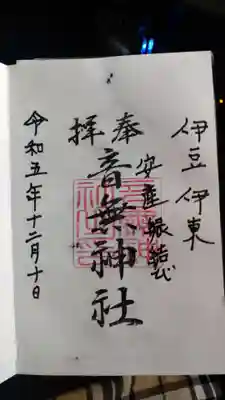 伊豆 伊東
安産 縁結び
奉拝
音無神社
令和五年十二月十日